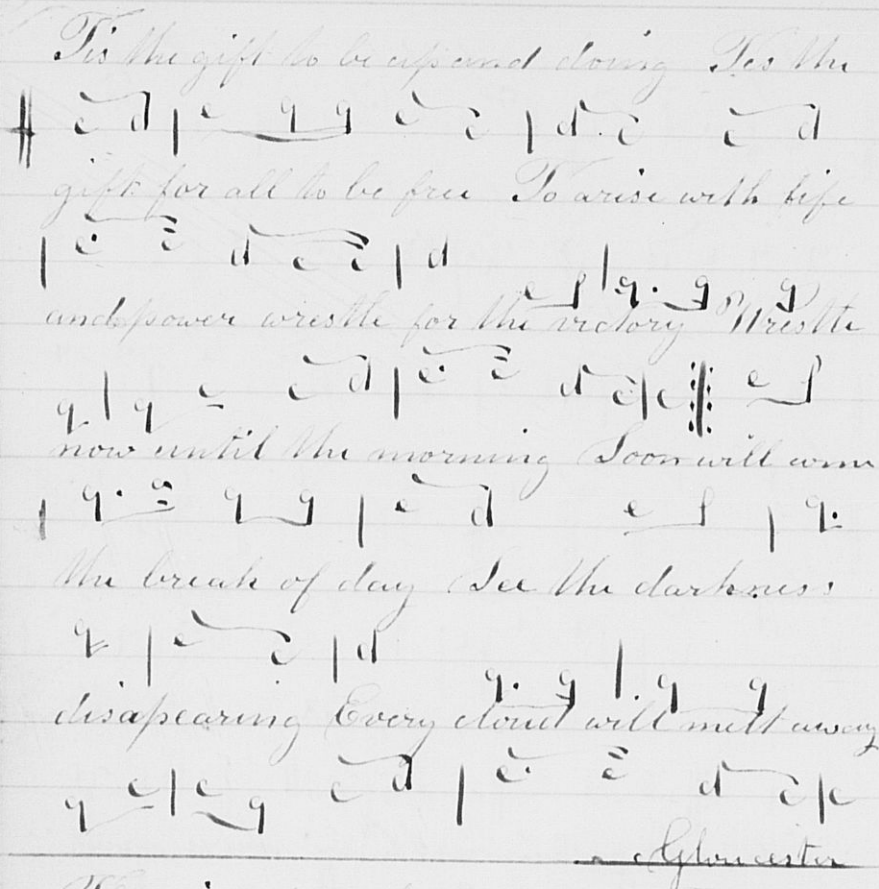 Tis the gift to be up and doing Tis the
gift for all to be free To arise with life
and power wrestle for the victory Wrestle
now until the morning Soon will come
the break of day See the darkness
disapearing Every cloud will melt away
Gloucester